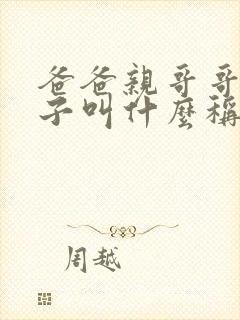 爸爸親哥哥
子叫什麼稱
周越